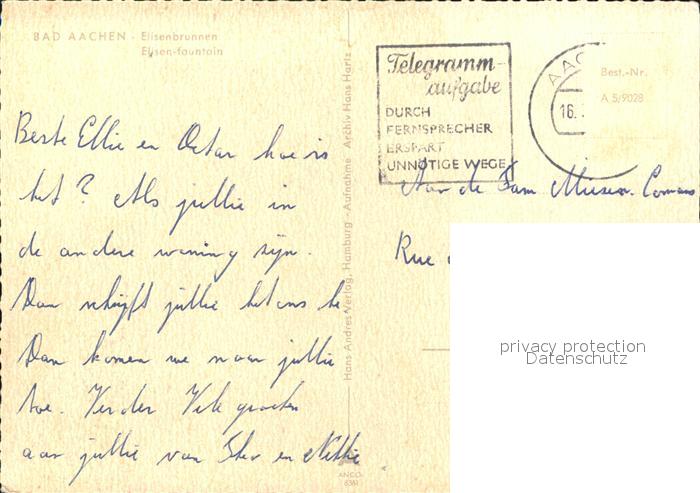 BAD AACHEN - Elisenbrunnen
Elisen-fountain
Beste Ellie en Octar hoe is
het? Als jullie in
de andere woning zijn.
Dan schrijft jullie het ons he
Dan komen we naar jullie
toe. Verder Vele groeten
aan jullie van Stev en Nellie
Hans Andres Verlag, Hamburg - Aufnahme Archiv Hans Hartz
ANCO
Telegramm-
aufgabe
DURCH
FERNSPRECHER
ERSPART
UNNÖTIGE WEGE
AAC
16.
Best.-Nr.
A 5/9028
Aan de Fam
Rue
privacy protection
Datenschutz